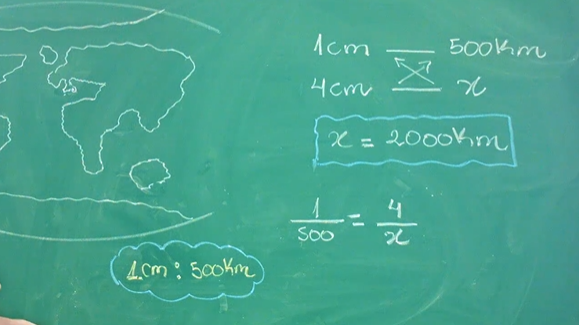 1cm — 500km
4cm — x
x = 2000km
1/500 = 4/x
1cm : 500km